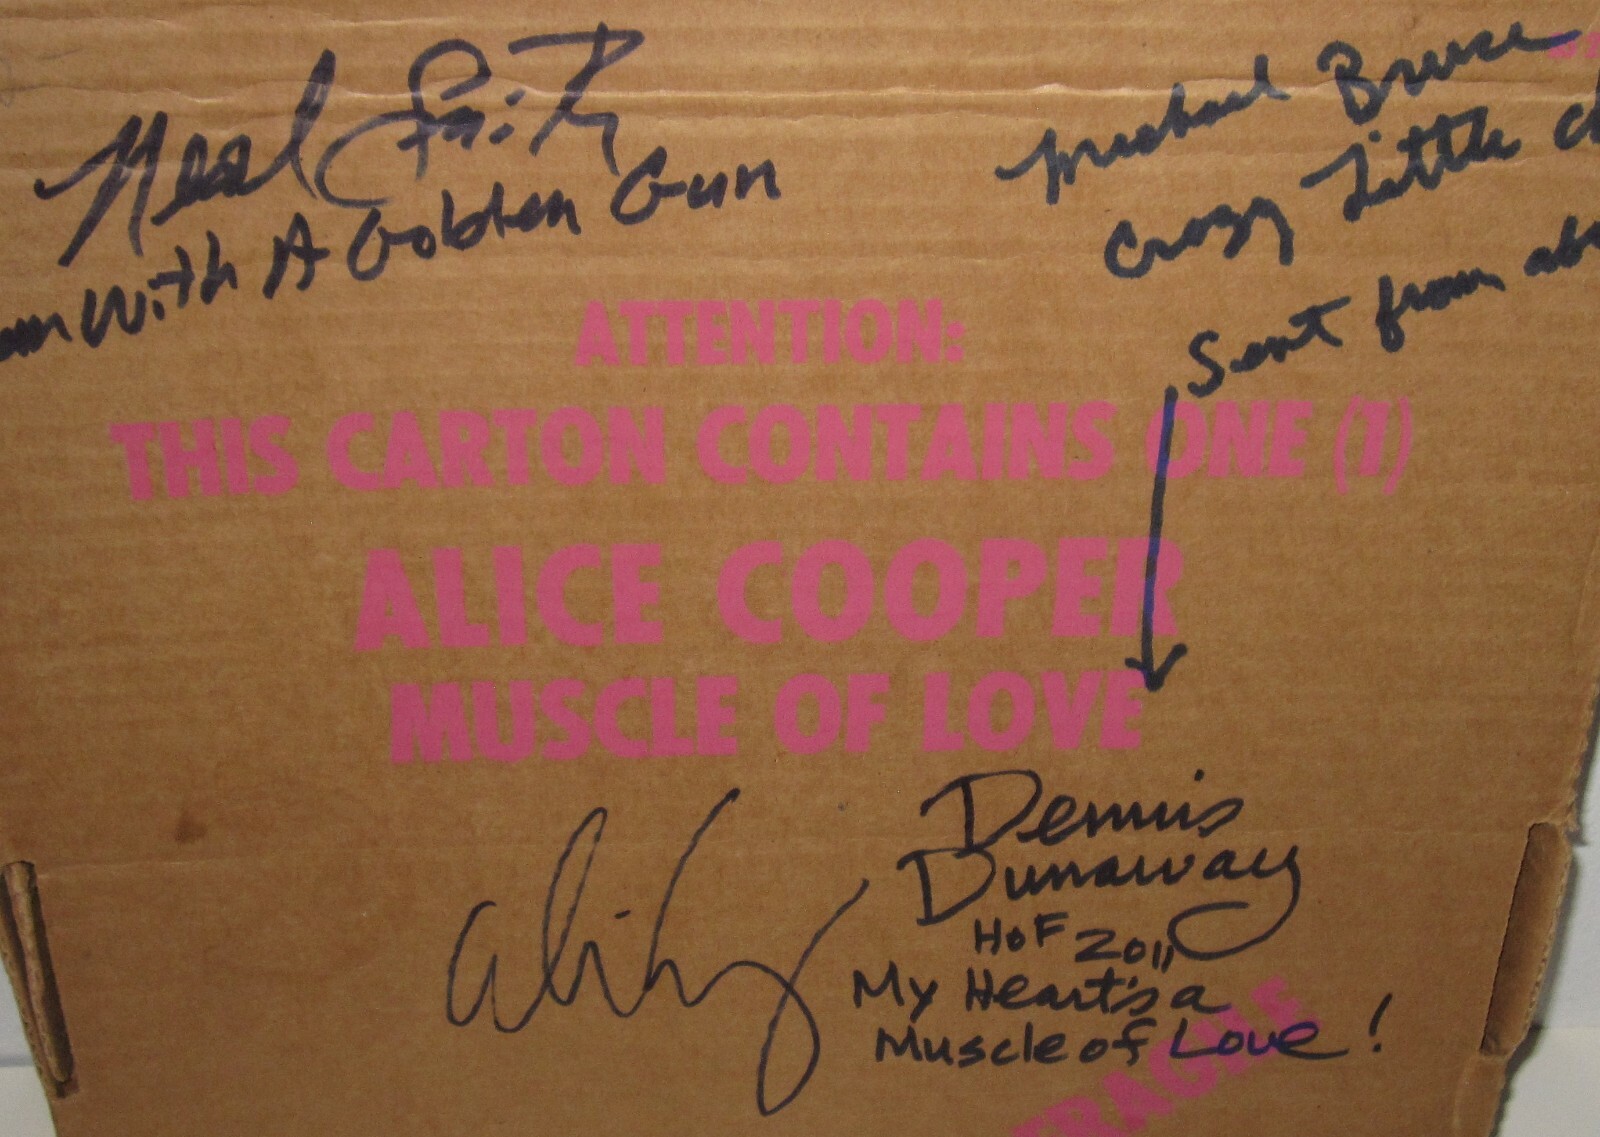 Neal Smith
With A Golden Gun
Michael Bruce
Crazy Little
Sent from
ATTENTION:
THIS CARTON CONTAINS ONE (1)
ALICE COOPER
MUSCLE OF LOVE
Dennis
Dunaway
HOF 2011
My Heart's a
Muscle of Love!
FRAGILE